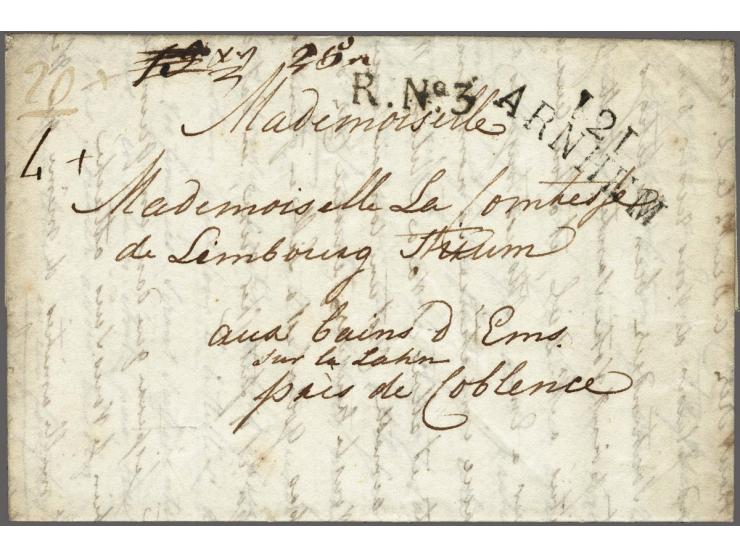 20
R. No. 3
121
ARNHEM
4 +
Mademoiselle
Mademoiselle La Comtesse
de Limbourg Stirum
aux bains d'Ems
sur la Lahn
près de Coblence